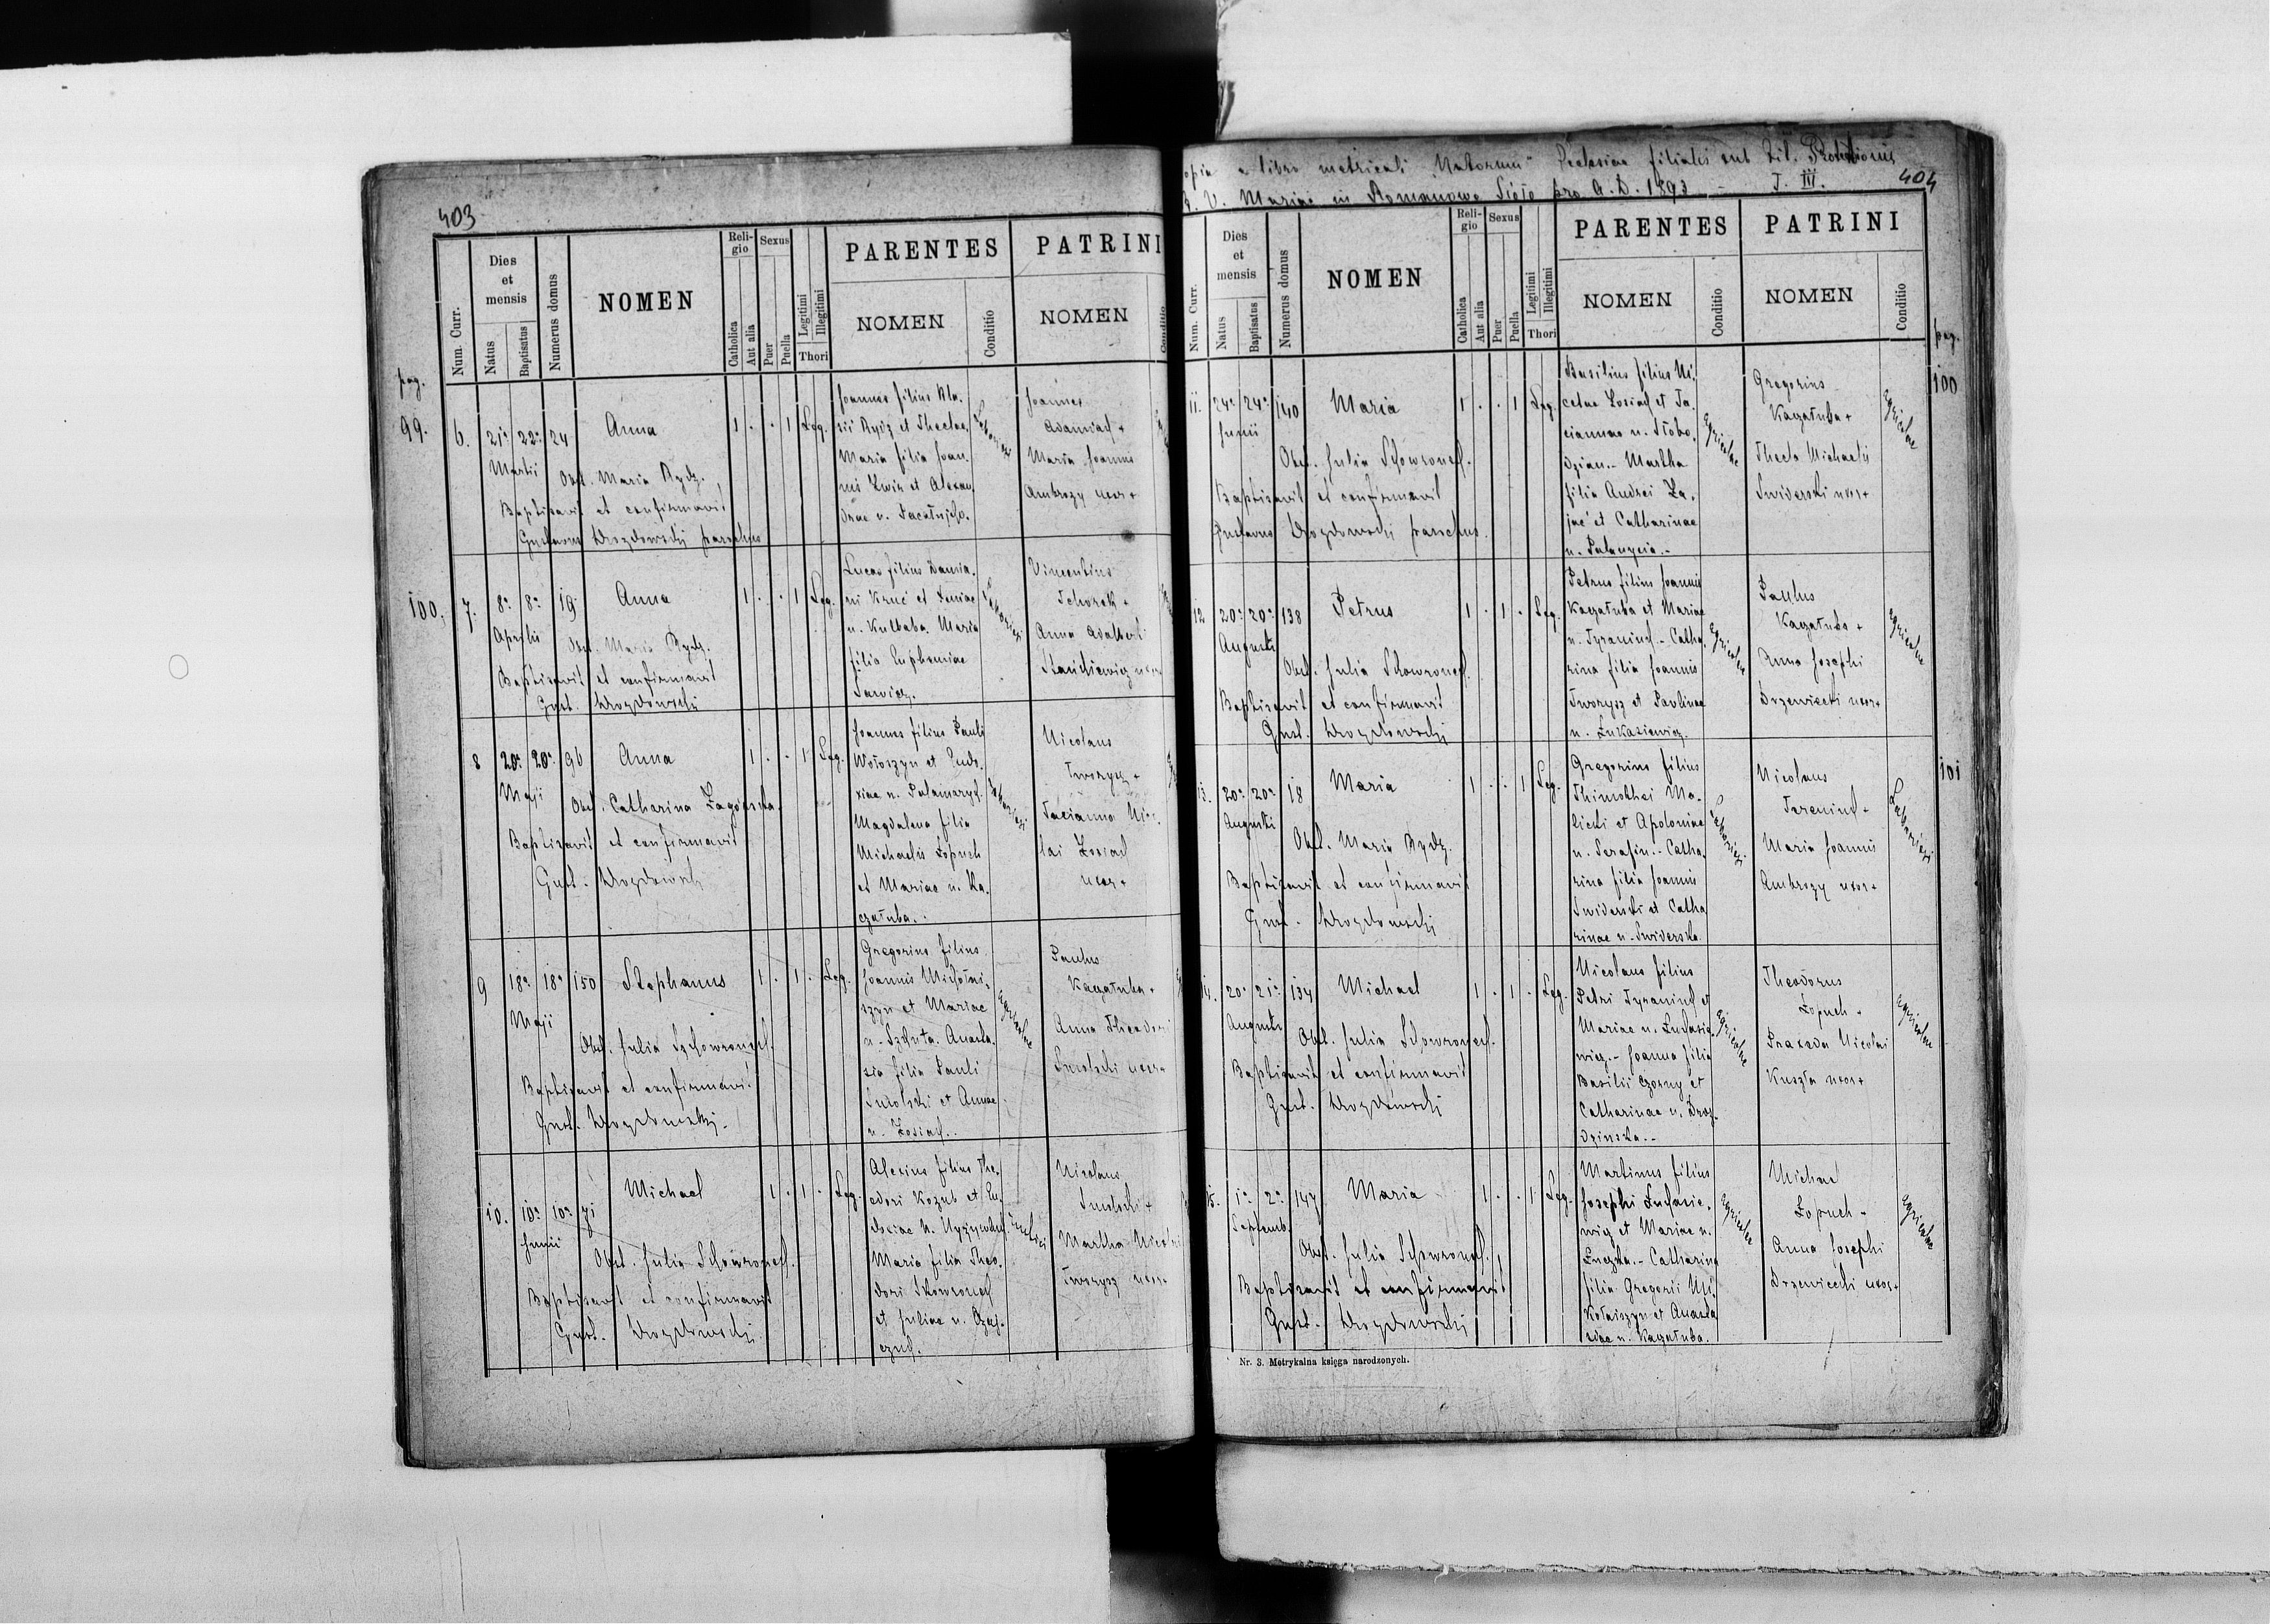 403
Num. Curr.
Dies et mensis
Natus
Baptisatus
Numerus domus
NOMEN
Religio
Catholica
Aut alia
Sexus
Puer
Puella
Legitimi
Illegitimi
Thori
PARENTES
NOMEN
Conditio
PATRINI
NOMEN
Conditio
pag.
99.
6.
21a 22a 24
Martii
Anna
1 . . 1 Leg.
Obst. Maria Rydz.
Baptisavit et confirmavit
Gustavus Drozdowski parochus
Joannes filius
Rydz et Theclae,
Maria filia Joan-
nis Zwir et Alexan-
drae n.
Joannes
Adamiach +
Maria Joannis
Ambrozy uxor +
100.
7.
8a 8a 19
Aprilis
Anna
1 . . 1 Leg.
Obst. Maria Rydz.
Baptisavit et confirmavit
Gust. Drozdowskij
Lucas filius Damia-
ni Kruć et Xeniae
n. Kulbaba. Maria
filia Euphemiae
Vincentius
Anna Adalberti
8
20a 20a 96
Maji
Anna
1 . . 1 Leg.
Obst. Catharina Zagórska.
Baptisavit et confirmavit
Gust. Drozdowskij
Joannes filius Pauli
Wołoszyn et Eudo-
xiae n. Palamaryk.
Magdalena filia
Michaelis Łopuch
et Mariae n. Ka-
czałuba. -
Nicolaus
Tworysz +
Tacianna Nico-
lai Łosiach
uxor +
9
18a 18a 150
Maji
Stephanus
1 . 1 . Leg.
Obst. Julia Schowronek.
Baptisavit et confirmavit
Gust. Drozdowskij.
Gregorius filius
Joannis Michołai-
szyn et Mariae
n. Szkuta. Anasta-
sia filia Pauli
Smolski et Annae
n. Łosiach. -
Agricolae
Paulus
Kaczałuba +
Anna Theodori
Smolski uxor +
10.
10a 10a 71
Junii
Michael
1 . 1 . Leg.
Obst. Julia Schowronek.
Baptisavit et confirmavit
Gust. Drozdowskij
Alexius filius The-
odori Kozub et Eu-
dociae n.
Maria filia Theo-
dori Skowronek
et Juliae n.
Nicolaus
Smolski +
Martha Nicolai
Tworysz uxor +
Copia e libro metricali "Natorum" Ecclesiae filialis sub tit. Protectionis
B. V. Mariae in Romanowe Sioło pro A. D. 1893 - T. III.
404
Num. Curr.
Dies et mensis
Natus
Baptisatus
Numerus domus
NOMEN
Religio
Catholica
Aut alia
Sexus
Puer
Puella
Legitimi
Illegitimi
Thori
PARENTES
NOMEN
Conditio
PATRINI
NOMEN
Conditio
pag.
100
11.
24a 24a 140
Junii
Maria
1 . . 1 Leg.
Obst. Julia Schowronek.
Baptisavit et confirmavit
Gustavus Drozdowski parochus.
Basilius filius Ni-
cetae Łosiach et Ta-
ciannae n. Słobo-
dzian. - Martha
filia Andrei Za-
jać et Catharinae
n.
Agricolae
Gregorius
Kaczałuba +
Thecla Michaelis
Świderski uxor +
Agricolae
12
20a 20a 138
Augusti
Petrus
1 . 1 . Leg.
Obst. Julia Schowronek.
Baptisavit et confirmavit
Gust. Drozdowskij
Petrus filius Joannis
Kaczałuba et Mariae
n. - Catha-
rina filia Joannis
Tworysz et Paulinae
n. Łukasiewicz.
Agricolae
Paulus
Kaczałuba +
Anna Josephi
Drzewiecki uxor +
Agricolae
101
13.
20a 20a 18
Augusti
Maria
1 . . 1 Leg.
Obst. Maria Rydz.
Baptisavit et confirmavit
Gust. Drozdowskij
Gregorius filius
Thimothei Ma-
licki et Apoloniae
n. Serafin. - Catha-
rina filia Joannis
Świderski et Catha-
rinae n. Świderska.
Nicolaus
Maria Joannis
Ambrozy uxor +
14.
20a 21a 134
Augusti
Michael
1 . 1 . Leg.
Obst. Julia Schowronek.
Baptisavit et confirmavit
Gust. Drozdowskij
Nicolaus filius
Petri et
Mariae n. Łukasie-
wicz. - Joanna filia
Basilii Czorny et
Catharinae n. Droz-
dzinska. -
Agricolae
Theodorus
Łopuch +
Praxeda Nicolai
Kuszła uxor +
Agricolae
15.
1a 2a 147
Septemb.
Maria
1 . . 1 Leg.
Obst. Julia Schowronek.
Baptisavit et confirmavit
Gust. Drozdowskij
Martinus filius
Josephi Łukasie-
wicz et Mariae n.
Luczka. - Catharina
filia Gregorii Mi-
kołaiszyn et Anasta-
siae n. Kaczałuba.
Agricolae
Michael
Łopuch +
Anna Josephi
Drzewiecki uxor +
Agricolae
Nr. 3. Metrykalna księga narodzonych.